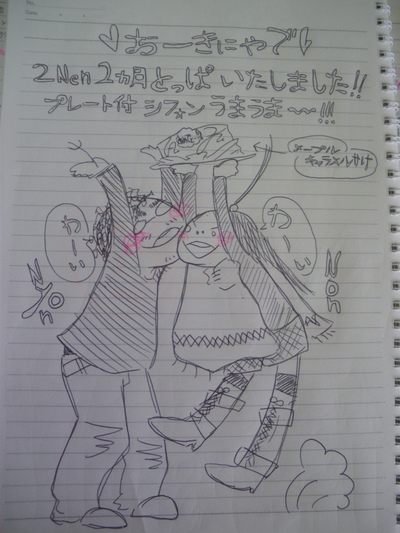 おーきにやで
2Nen 2ヵ月とっぱ いたしました!!
プレート付 シフォン うまうま〜!!!
メープル
キャラメルがけ
わーい
わーい